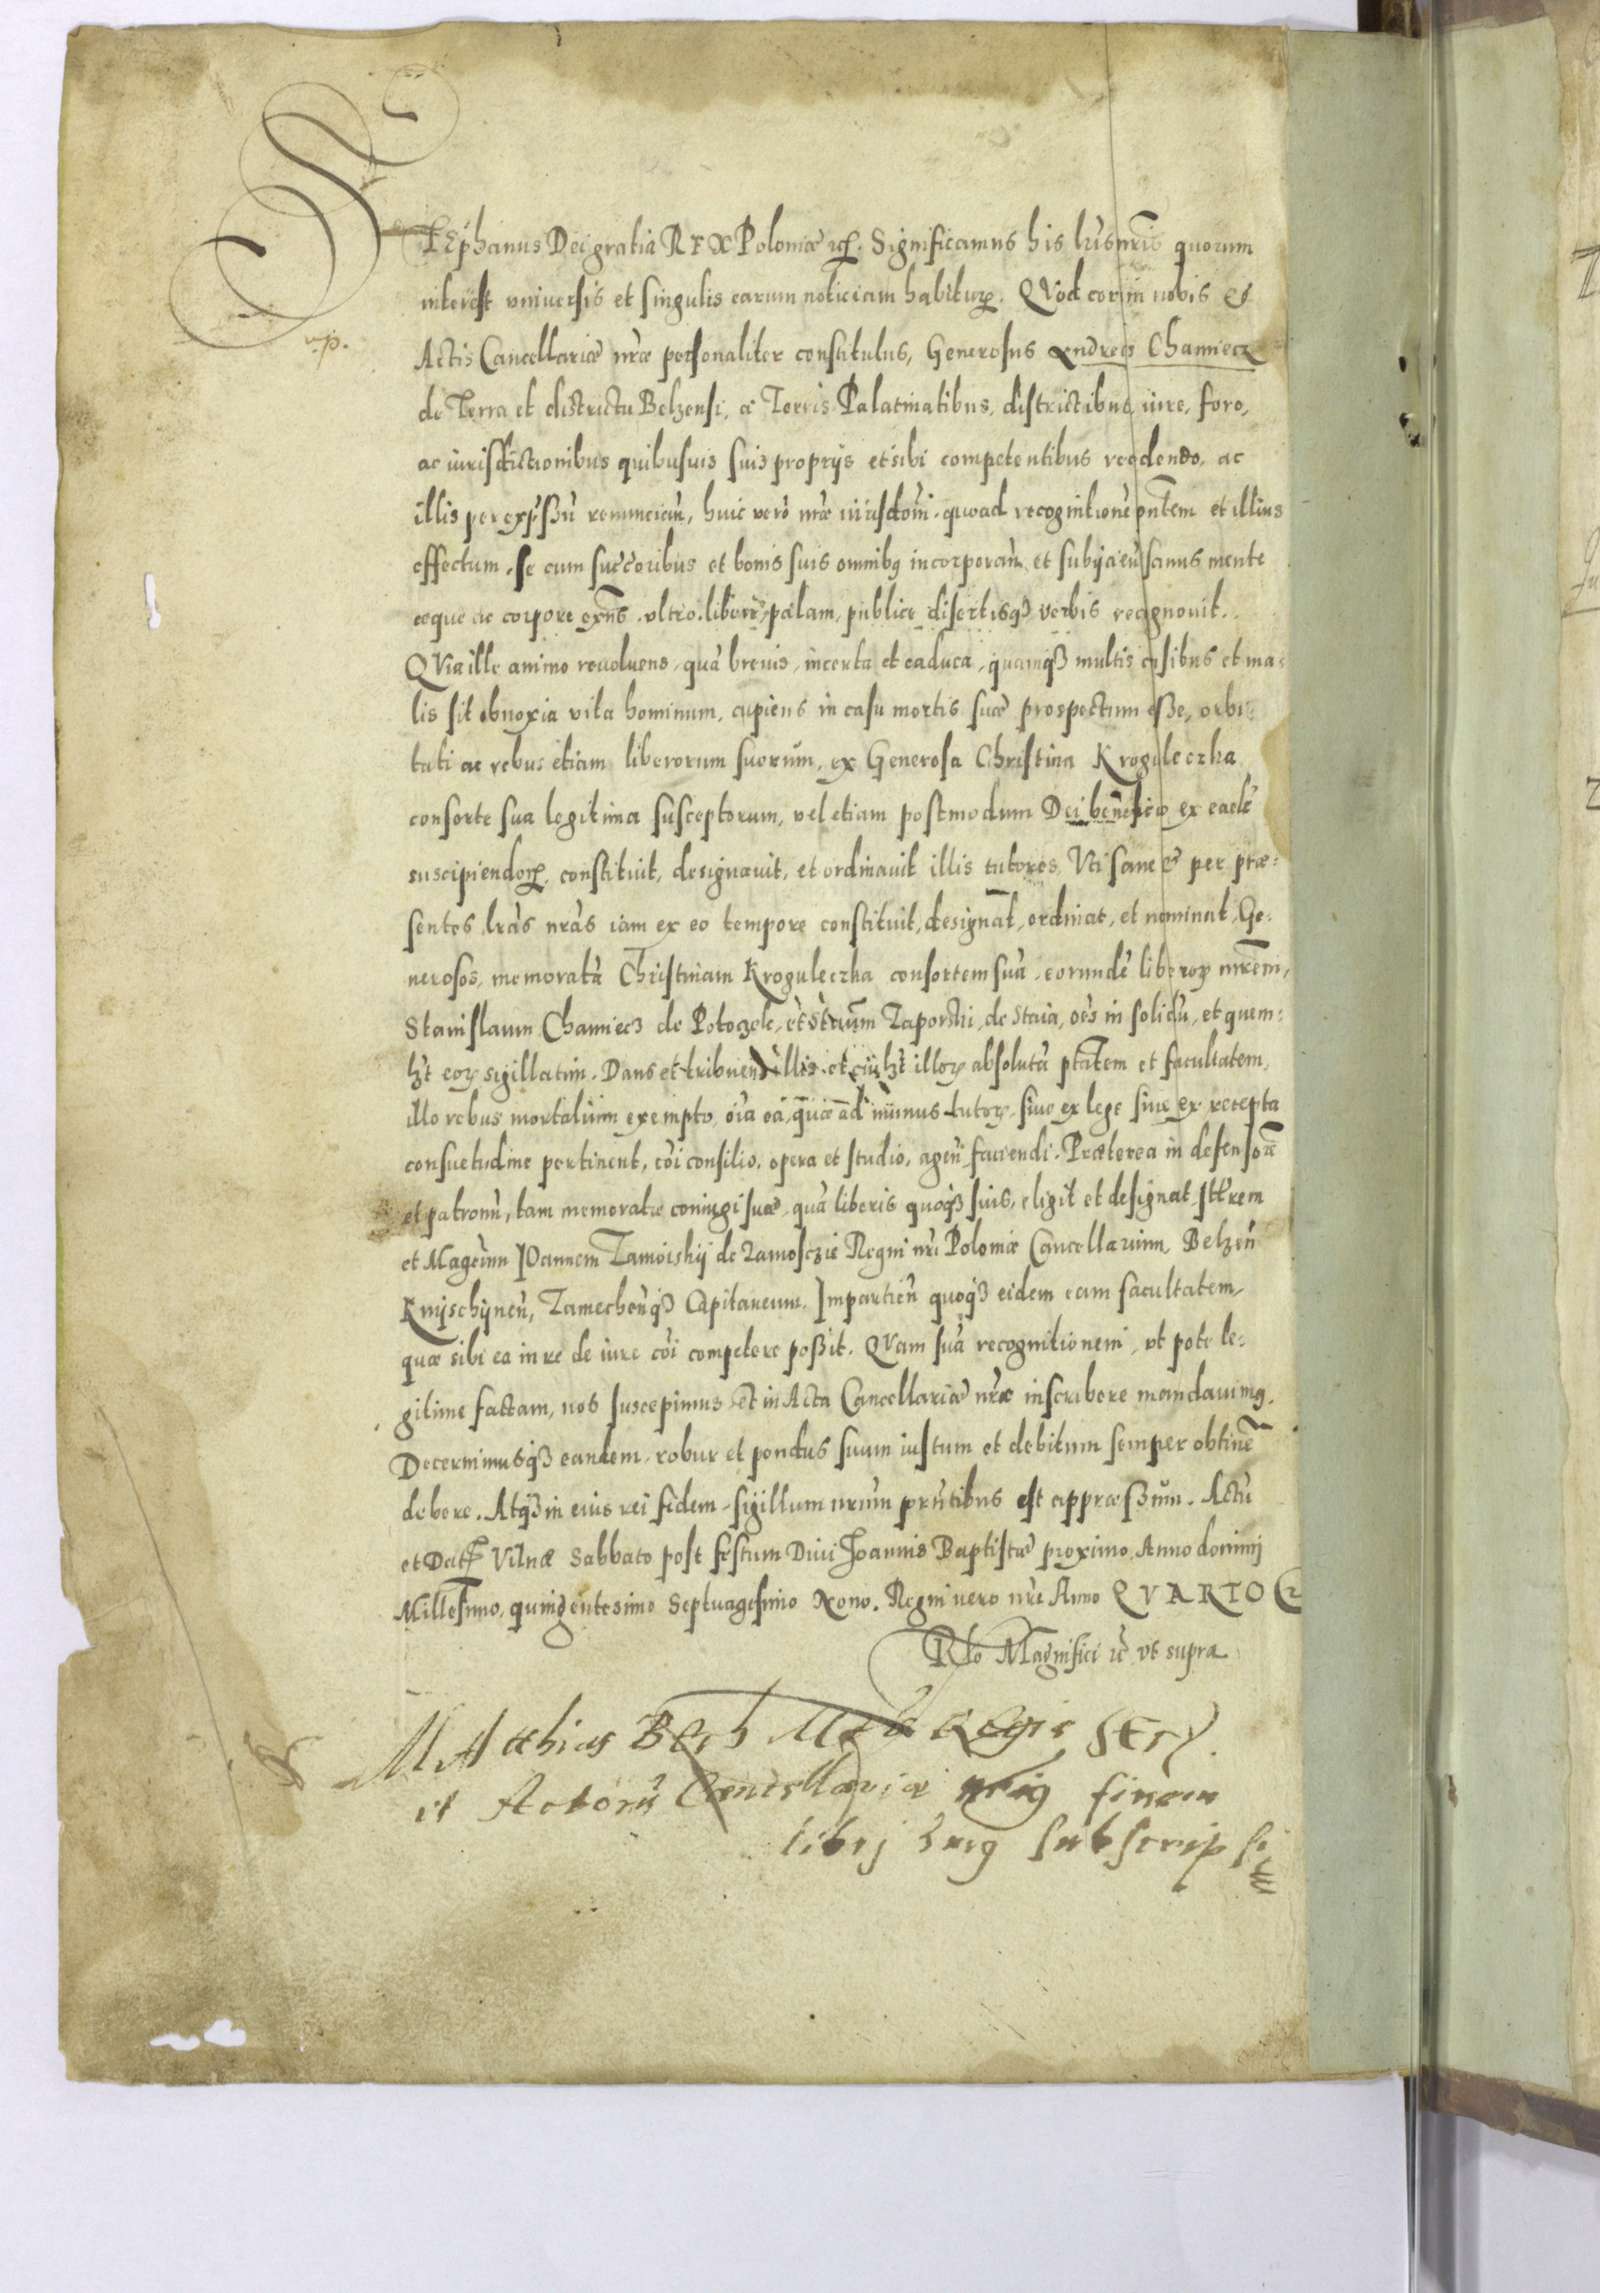 STEphanus Dei gratia REX Poloniæ etc. Significamus his lris nris quorum
interest vniuersis et singulis earum noticiam habiturꝝ. QVod coram nobis et
Actis Cancellariæ nræ personaliter constitutus, Generosus Andreas Chamiecz
de Terra et districtu Belzensi, a Terris Palatinatibus, districtibus iure, foro,
ac iurisdictionibus quibusuis suis proprijs et sibi competentibus recedendo, ac
illis per expssũ renunciãn, huic verò nræ iurisdõni, quoad recognitionẽ pntem et illius
effectum, se cum succoribus et bonis suis omnibꝯ incorporãn et subijcieñ sanus mente
æque ac corpore exñs, vltro, libere, palam, publice disertisqꝫ verbis recognouit.
QVia ille animo reuoluens, quã breuis, incerta et caduca, quamqꝫ multis casibus et ma=
lis sit obnoxia vita hominum, cupiens in casu mortis suæ prospectum esse, orbi
tati ac rebus etiam liberorum suorum, ex Generosa Christina Kroguleczka
consorte sua legitima susceptorum, vel etiam postmodum Dei beneficio ex eadẽ
suscipiendoꝝ, constituit, designauit, et ordinauit illis tutores Vti sane et per præ=
sentes lrãs nrãs iam ex eo tempore constituit, designat, ordinat, et nominat, Ge=
nerosos, memoratã Christinam Kroguleczka consortem suã, eorundẽ liberoꝝ mrem,
Stanislaum Chamiecz de Potoczek, et Strum Zaporski, de Staia, oẽs in solidũ, et quem=
lꝫt eoꝝ sigillatim. Dans et tribuens illis et cuilꝫt illoꝝ absolutã ptãtem et facultatem,
illo rebus mortalium exempto, oĩa ea, quæ ad munus tutoꝝ, siue ex lege siue ex recepta
consuetudine pertinent, cõi consilio, opera et studio, agen faciendi. Præterea in defensorẽ
et patronũ, tam memoratæ coniugi suæ, quã liberis quoqꝫ suis, eligit et designat Illrem
et Magcum IOannem Zamoiskij de Zamosczie Regni nri Poloniæ Cancellarium, Belzeñ
Knijschijneñ, Zamecheñqꝫ Capitaneum. Impartieñ quoqꝫ eidem eam facultatem,
quæ sibi ea in re de iure cõi competere possit. QVam suã recognitionem, vt pote le=
gitime factam, nos suscepimus et in Acta Cancellariæ nræ inscribere mandauimꝯ.
Decernimusqꝫ eandem, robur et pondus suum iustum et debitum semper obtinẽ
debere. Atqꝫ in eius rei fidem, sigillum nrum pntibus est appræssum. Actũ
et Datꝭ Vilnæ Sabbato post festum Diui Joannis Baptistæ proximo. Anno domini
Millesimo, quingentesimo Septuagesimo Nono. Regni uero nri Anno QVARTO
Rlo Magnifici etc vt supra
MAtthias Regis
et Actorũ Cancellariæ finem
libri huiꝯ subscripsi